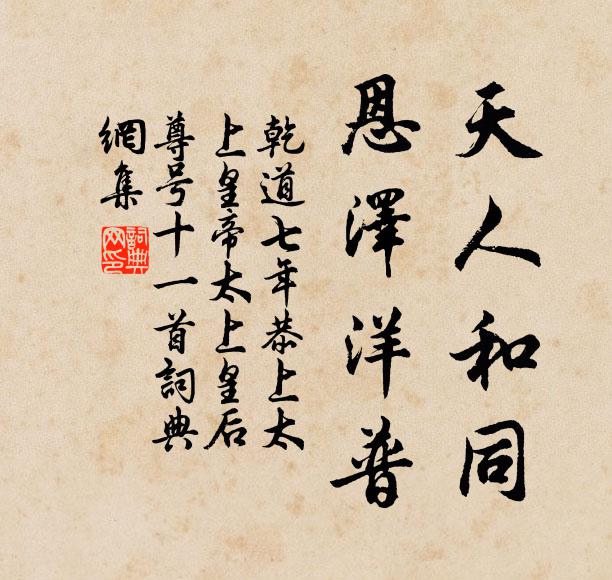 天人和同
恩澤洋普
乾道七年恭上太
上皇帝太上皇后
尊号十一首詞典
網集
詞典
网印